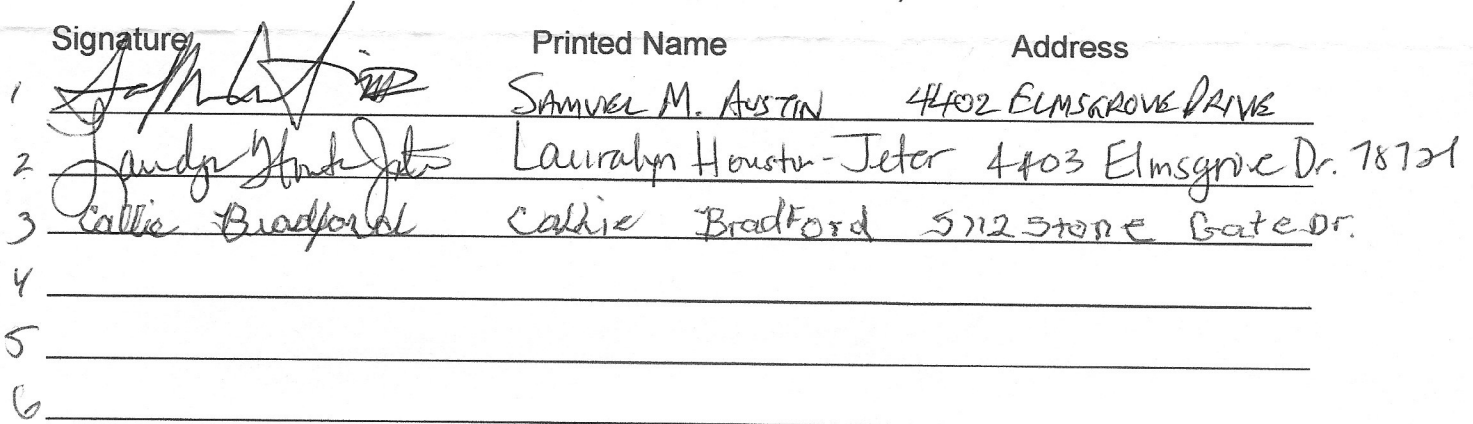 Signature Printed Name Address
1 SAMUEL M. AUSTIN 4402 ELMSGROVE DRIVE
2 Lauralyn Houston-Jeter 4403 Elmsgrove Dr. 78721
3 Callie Bradford Callie Bradford 5712 Stone Gate Dr.
4
5
6